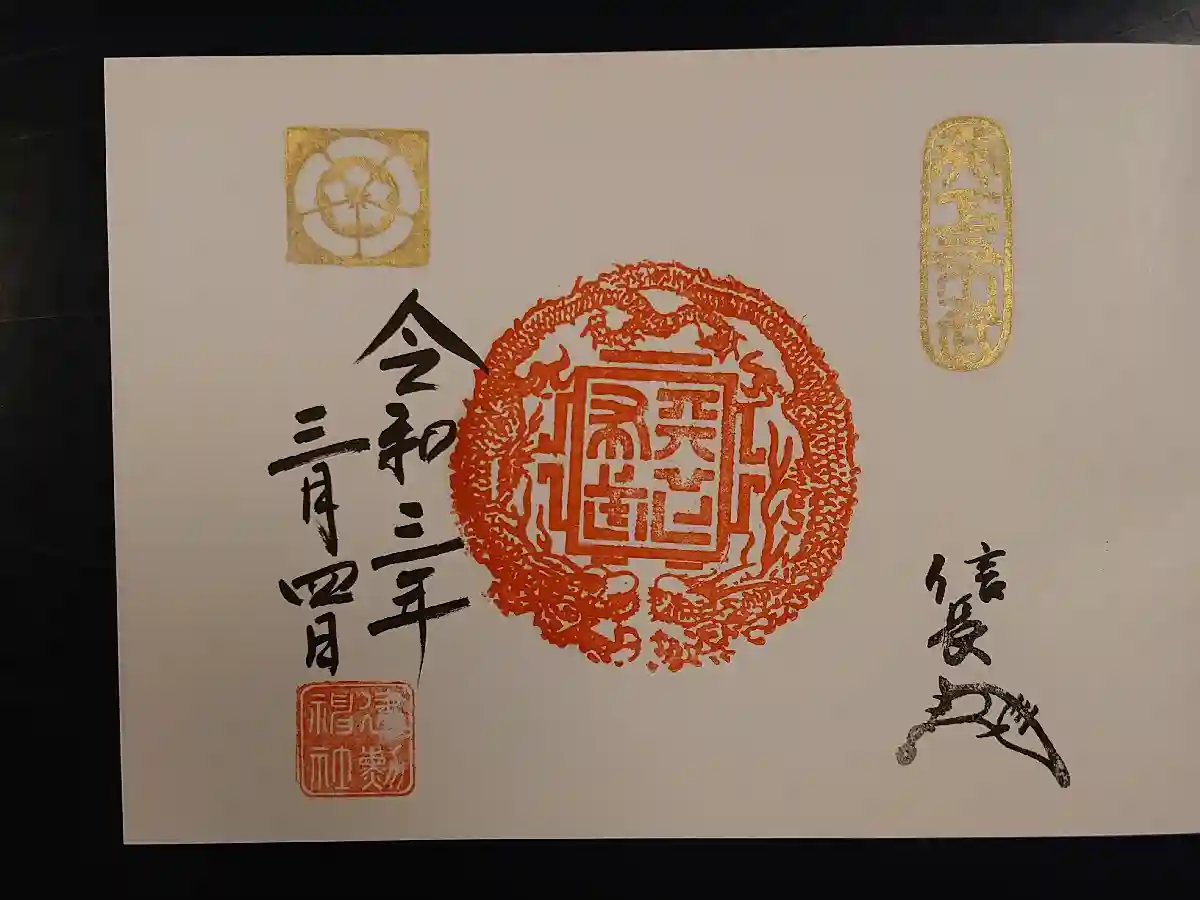 信長
天下
布武
令和三年
三月四日
建勲
神社